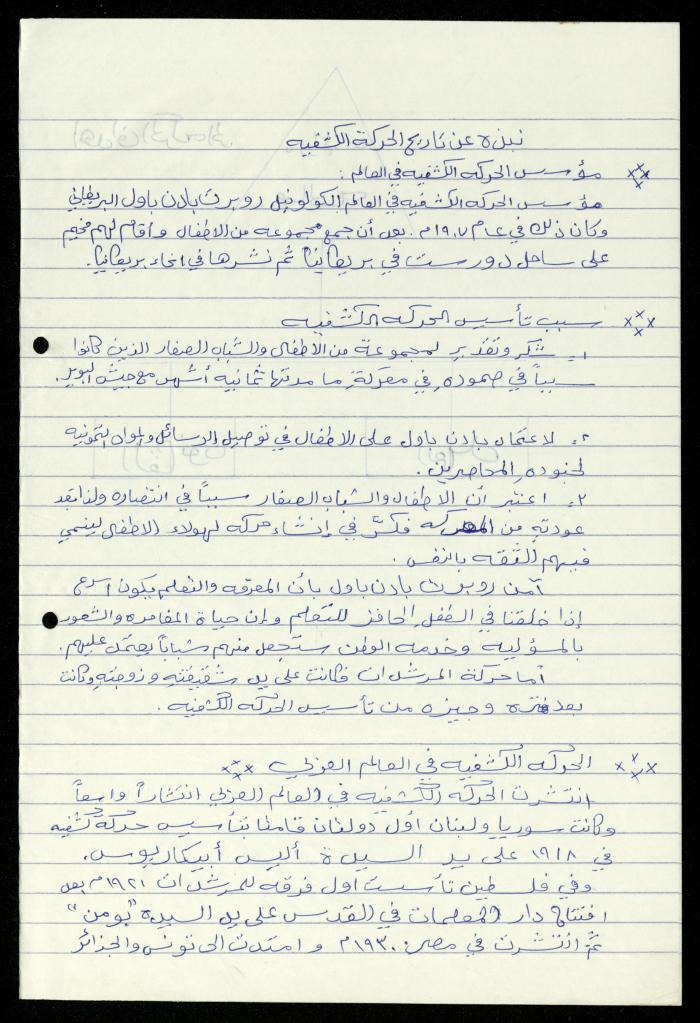 نبذه عن تاريخ الحركة الكشفيه
مؤسس الحركه الكشفيه في العالم :
مؤسس الحركه الكشفيه في العالم الكولونيل روبرت بادن باول البريطاني
وكان ذلك في عام ١٩٠٧م. بعد أن جمع مجموعه من الاطفال وأقام لهم مخيم
على ساحل دورست في بريطانيا ثم نشرها في انحاء بريطانيا.
سبب تأسيس الحركه الكشفيه
١- شكر وتقدير لمجموعة من الأطفال والشباب الصغار الذين كانوا
سبباً في صموده في معركةٍ ما مدتها ثمانيه أشهر مع جيش البوير.
٢- لاعتماد بادن باول على الاطفال في توصيل الرسائل والمواد التموينيه
لجنوده المحاصرين.
٣- اعتبر أن الاطفال والشباب الصغار سبباً في انتصاره ولذا بعد
عودته من المعركه فكّر في إنشاء حركه لهولاء الاطفال لينمي
فيهم الثقه بالنفس.
آمن روبرت بادن باول بأن المعرفه والتعلم يكون اسرع
إذا خلقنا في الطفل الحافز للتعلم وإن حياة المغامره والشعور
بالمسؤليه وخدمه الوطن ستجعل منهم شباباً يعتمد عليهم.
أما حركة المرشدات فكانت على يد شقيقته وزوجته وكانت
بعد فتره وجيزه من تأسيس الحركه الكشفيه.
الحركه الكشفيه في العالم العربي
انتشرت الحركه الكشفيه في العالم العربي انتشاراً واسعاً
وكانت سوريا ولبنان اول دولتان قامتا بتأسيس حركة كشفيه
في ١٩١٨ على يد السيدة أليس أبيكاريوس.
وفي فلسطين تأسست اول فرقه للمرشدات ١٩٢١م بعد
افتتاح دار المعلمات في القدس على يد السيده "بومن"
ثم انتشرت في مصر ١٩٣٠م وامتدت الى تونس والجزائر